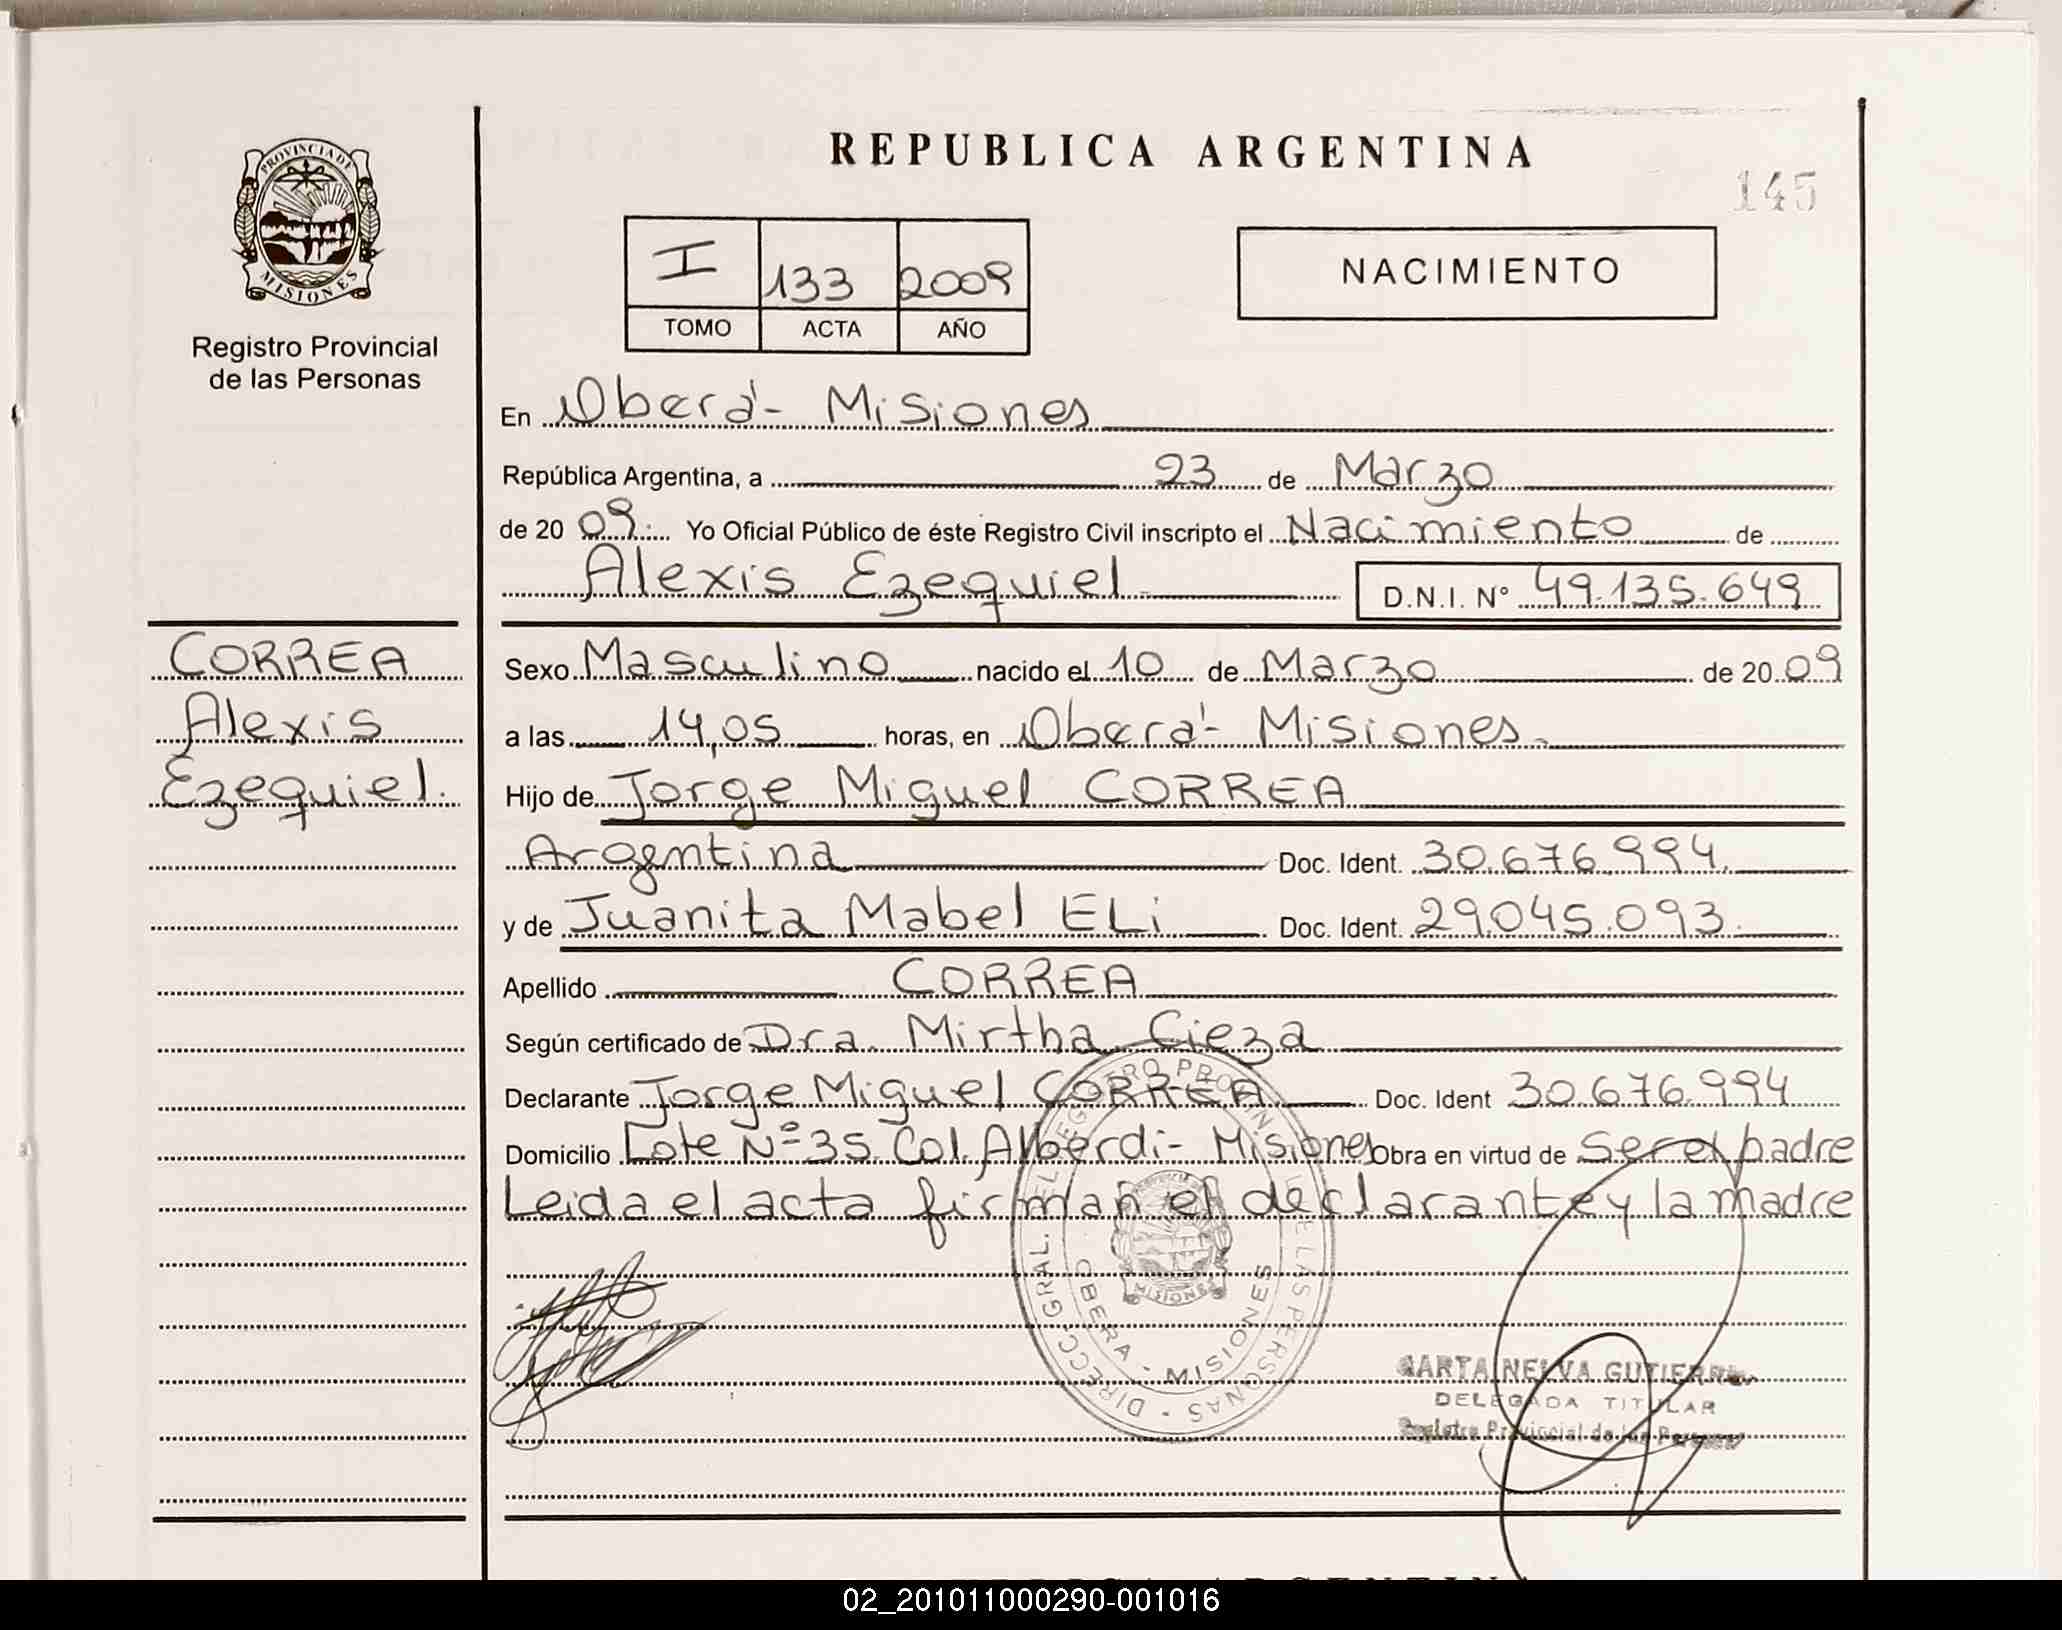 REPUBLICA ARGENTINA
145
PROVINCIA DE
MISIONES
Registro Provincial
de las Personas
I 133 2009
TOMO ACTA AÑO
NACIMIENTO
En Oberá - Misiones
República Argentina, a 23 de Marzo
de 2009. Yo Oficial Público de éste Registro Civil inscripto el Nacimiento de
Alexis Ezequiel D.N.I. N° 49.135.649
CORREA
Alexis
Ezequiel.
Sexo Masculino nacido el 10 de Marzo de 2009
a las 14,05 horas, en Oberá - Misiones.
Hijo de Jorge Miguel CORREA
Argentina Doc. Ident. 30.676.994.
y de Juanita Mabel ELi Doc. Ident. 29.045.093.
Apellido CORREA
Según certificado de Dra. Mirtha Cieza
Declarante Jorge Miguel CORREA Doc. Ident 30.676.994
Domicilio Lote Nº 35. Col. Alberdi - Misiones Obra en virtud de Ser el padre
Leida el acta firman el declarante y la madre
DIRECC. GRAL. DEL REGISTRO PROVINCIAL DE LAS PERSONAS
OBERA - MISIONES
MISIONES
MARTA NELVA GUTIERREZ
DELEGADA TITULAR
Registro Provincial de las Personas
02_201011000290-001016